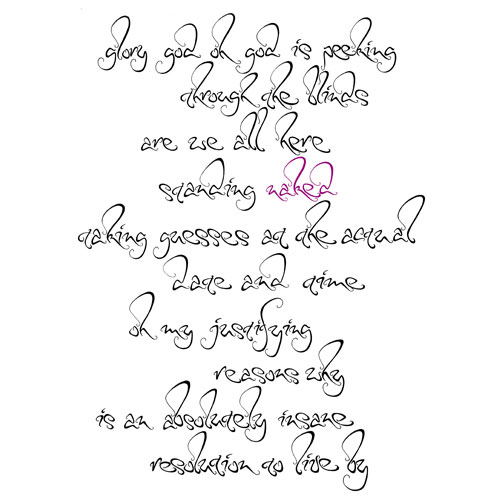 glory god oh god is peeking
through the blinds
are we all here
standing naked
taking guesses at the actual
date and time
oh my justifying
reasons why
is an absolutely insane
resolution to live by